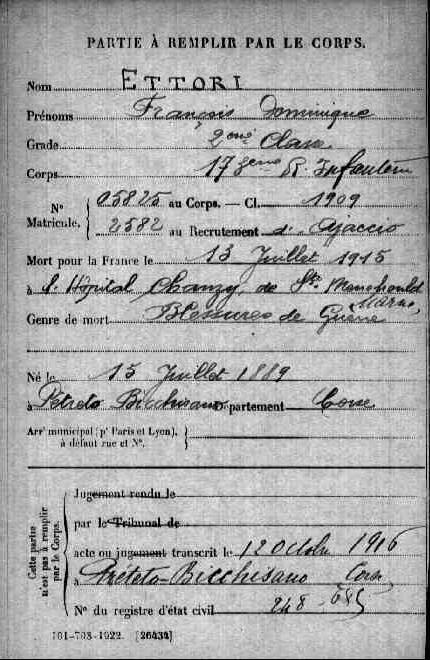 PARTIE À REMPLIR PAR LE CORPS.
Nom ETTORI
Prénoms François Dominique
Grade 2eme Classe
Corps 173eme R. Infanterie
N° Matricule. 05825 au Corps. — Cl. 1909
2582 au Recrutement d' Ajaccio
Mort pour la France le 13 Juillet 1915
à l'Hôpital Chanzy de Ste Menehould
Marne,
Genre de mort Blessures de Guerre
Né le 15 Juillet 1889
à Petreto Bicchisano Département Corse
Arrt municipal (pr Paris et Lyon),
à défaut rue et N°.
Cette partie n'est pas à remplir par le Corps.
Jugement rendu le
par le Tribunal de
acte ou jugement transcrit le 12 Octobre 1916
à Preteto-Bicchisano Corse
N° du registre d'état civil 248
101-708-1922. [26434]